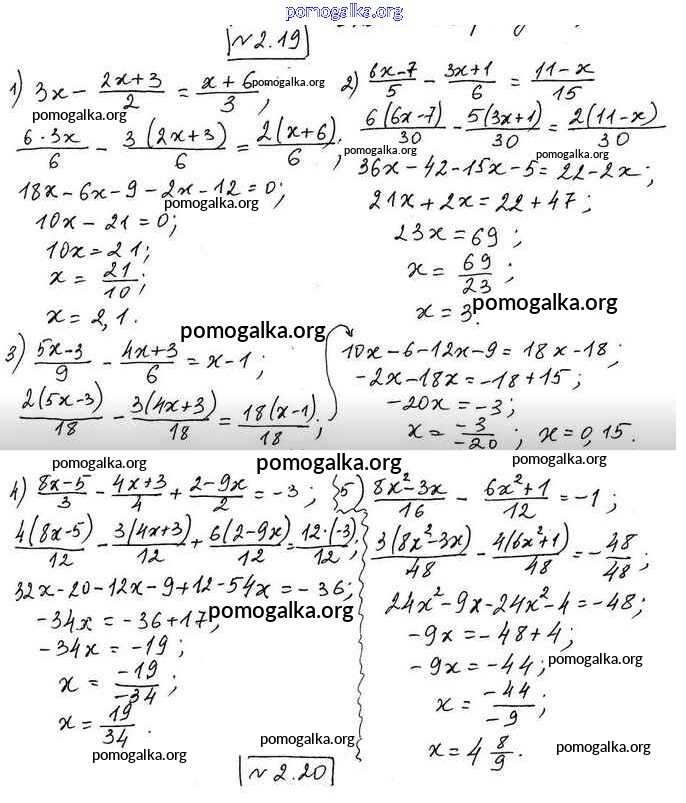 pomogalka.org
№2.19
1) 3x - (2x+3)/2 = (x+6)/3,
pomogalka.org
pomogalka.org
(6·3x)/6 - 3(2x+3)/6 = 2(x+6)/6;
18x-6x-9-2x-12=0;
pomogalka.org
10x-21=0;
10x=21;
x = 21/10;
x = 2,1.
2) (6x-7)/5 - (3x+1)/6 = (11-x)/15
6(6x-7)/30 - 5(3x+1)/30 = 2(11-x)/30
pomogalka.org
pomogalka.org
36x-42-15x-5=22-2x;
21x+2x=22+47;
23x=69;
x = 69/23;
x = 3.
pomogalka.org
pomogalka.org
3) (5x-3)/9 - (4x+3)/6 = x-1;
2(5x-3)/18 - 3(4x+3)/18 = 18(x-1)/18;
10x-6-12x-9=18x-18;
-2x-18x=-18+15;
-20x=-3;
x = -3/-20; x=0,15.
pomogalka.org
pomogalka.org
pomogalka.org
4) (8x-5)/3 - (4x+3)/4 + (2-9x)/2 = -3;
4(8x-5)/12 - 3(4x+3)/12 + 6(2-9x)/12 = 12·(-3)/12;
32x-20-12x-9+12-54x=-36;
-34x=-36+17;
pomogalka.org
-34x=-19;
x = -19/-34;
x = 19/34.
pomogalka.org
5) (8x²-3x)/16 - (6x²+1)/12 = -1;
3(8x²-3x)/48 - 4(6x²+1)/48 = -48/48;
24x²-9x-24x²-4=-48;
-9x=-48+4;
-9x=-44;
pomogalka.org
x = -44/-9;
x = 4 8/9.
pomogalka.org
pomogalka.org
№2.20